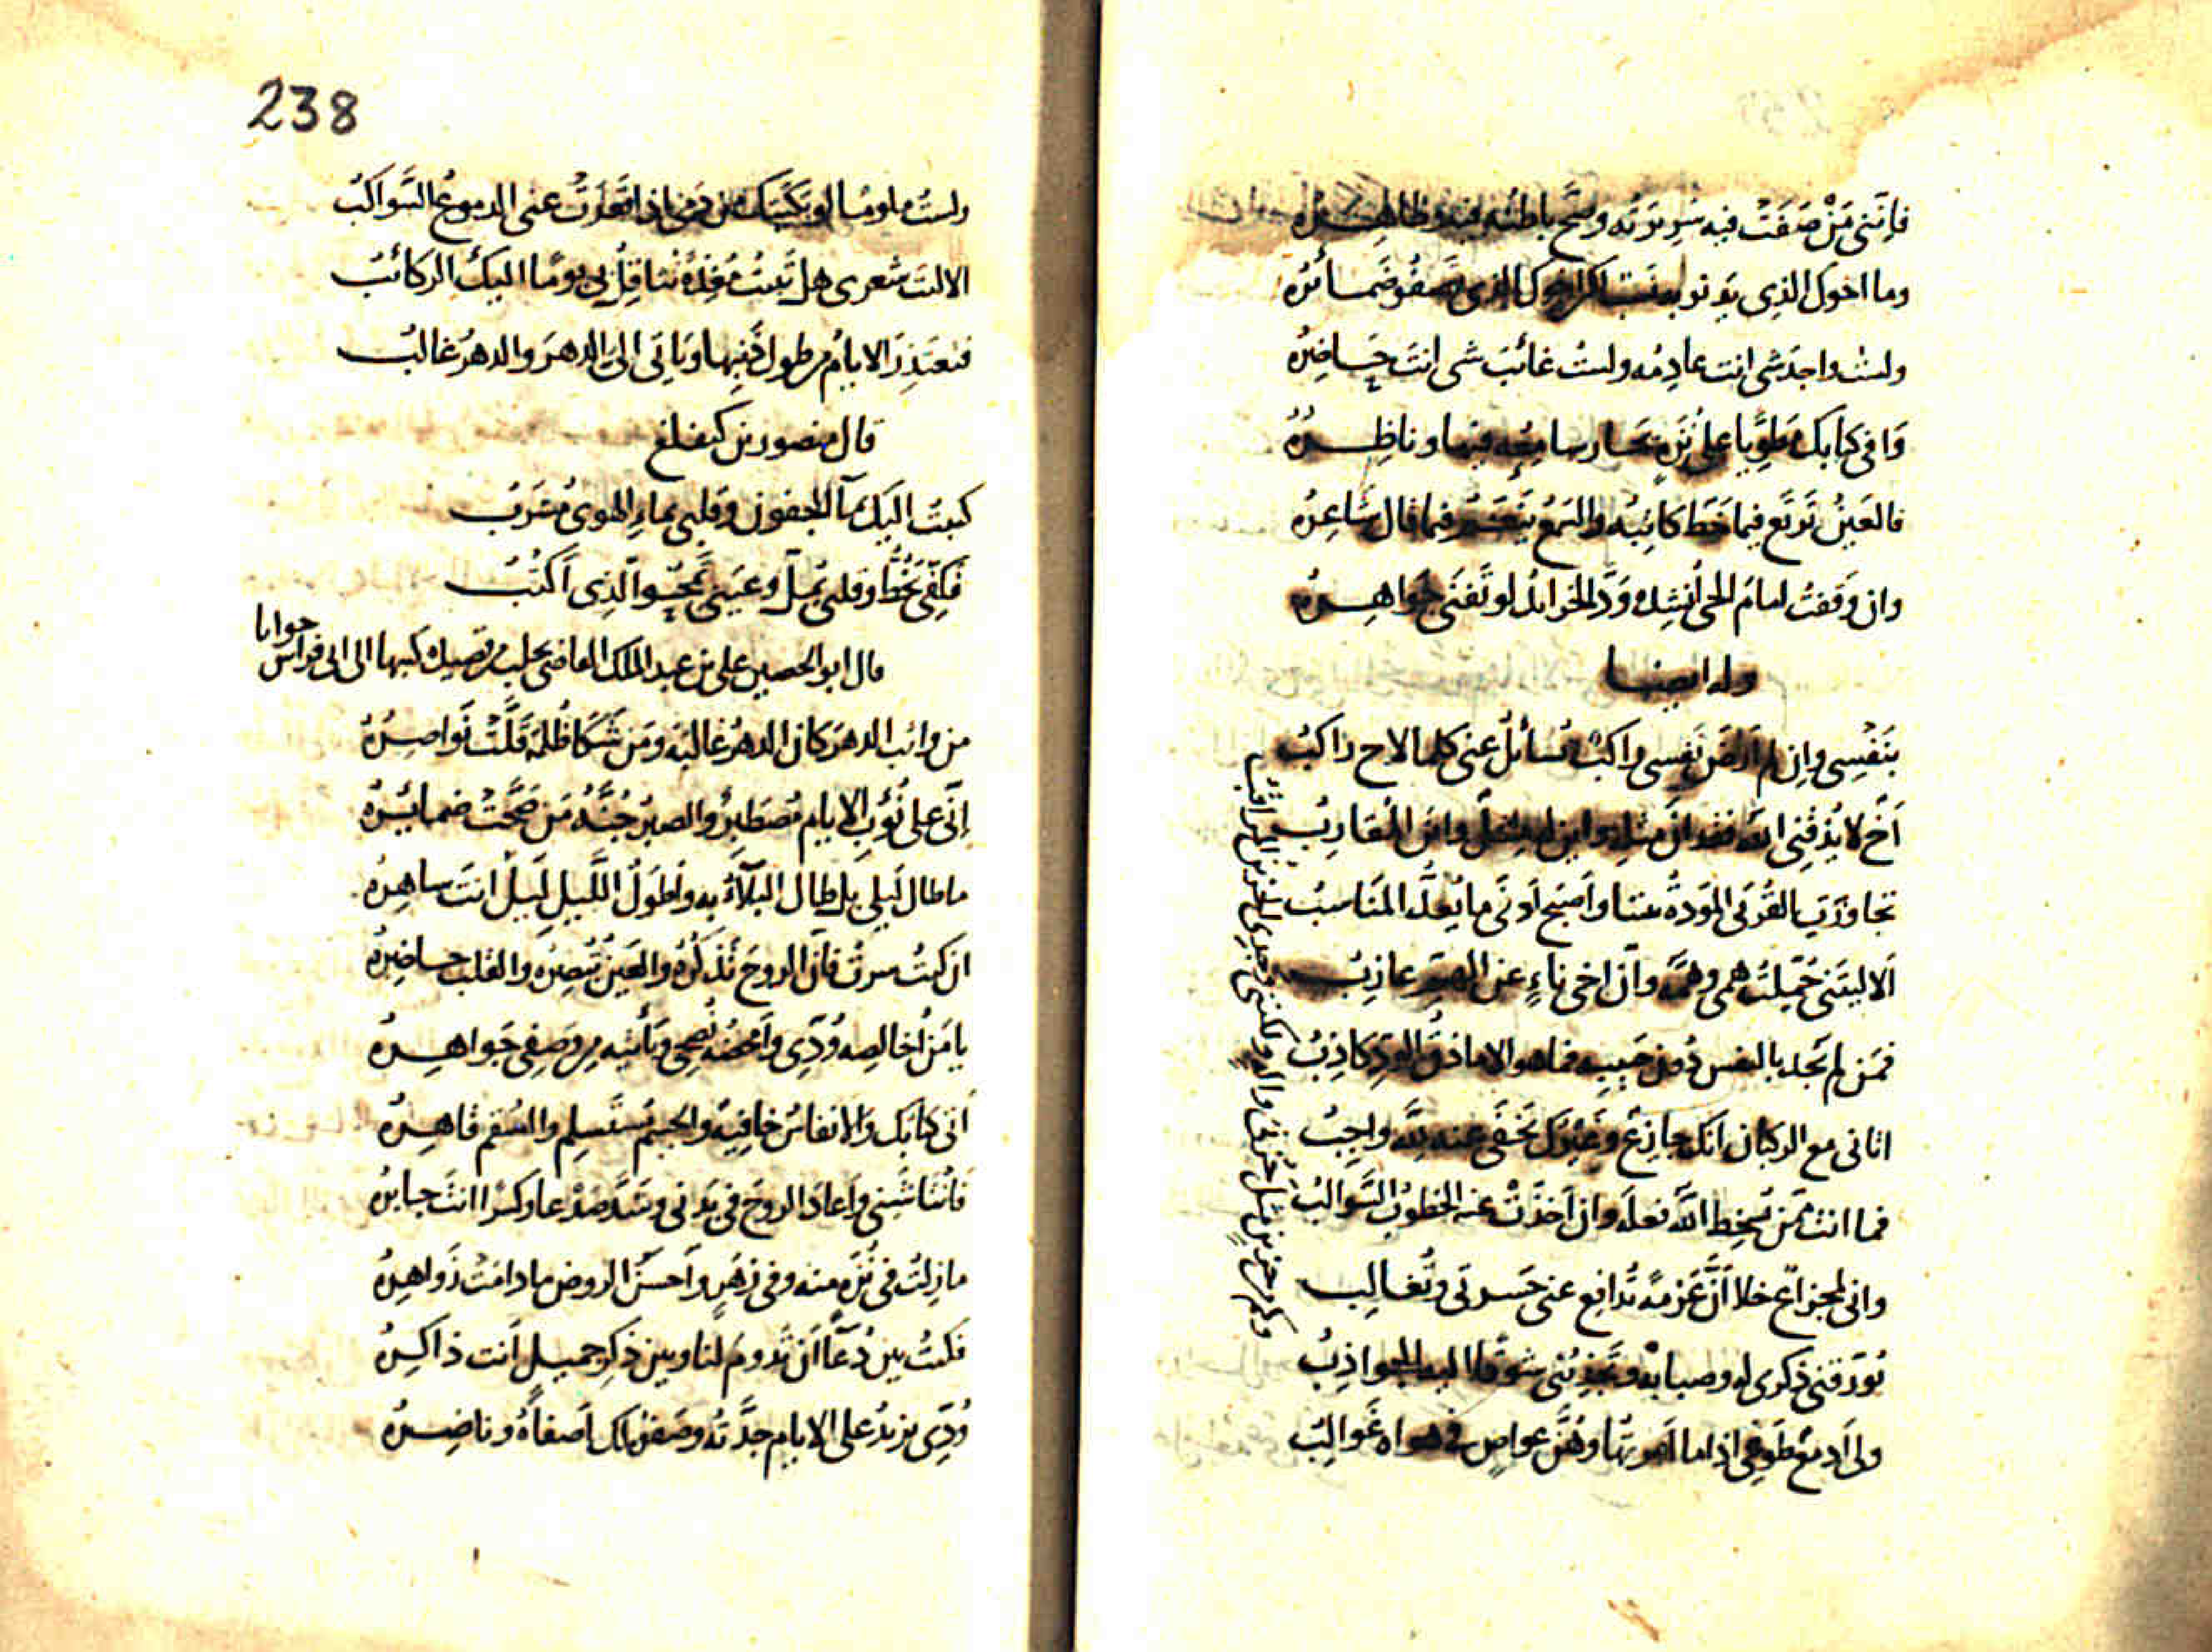 فإنّني مَنْ صَفَتْ فيه سَرِيرَتُه وصَحّ باطنُه فيه وظاهِرُه
وما اخوك الذي يَدنو به نَسَبٌ لكن اخوك الذي تصفُو ضَمائرُه
ولستُ واجدَ شي انت عادِمُه ولستُ غائبَ شي انتَ حَاضِرُه
وَافى كتابك مَطوِيًا على نُزَهٍ يحار سامِعُه فيها وناظِرُهُ
فالعَينُ تَرتَع فيما خَطّ كاتِبُه والسمعُ يَنعَم فيما قال شَاعِرُه
وان وَقَفتُ امامَ الحي اُنشِدُه وَدَّ الخرائدُ لو تُقنَى جَواهِرُه
وله ايضا
بنَفْسِي وإن لم اَرضَ نَفسِي راكبٌ تُسائلُ عني كلما لاح راكبُ
اَخٌ لا يُذقنِي الله فقدانَ مثلِه واين له مِثلٌ واينَ المُقارِبُ
تجاوزَتِ القُربَى المَوَدةُ بيننا واَصبَح اَدنَى ما يُعدّ المَناسبُ
اَلا ليتَني حُمّلتُ همي وهمَّه واَنّ اخي ناءٍ عن الهمّ عازبُ
فمَن لم يَجُد بالنفس دُونَ حَبيبِه فما هو الا ماذقُ الودّ كاذبُ
اتاني مع الركبان اَنّك جازِعٌ وغَيرُك يَخفَى عنه لله واجِبُ
فما انت ممّن يُسخِط اللهَ فعلُه وان اَخذَتْ منه الخطوبُ السَّوالبُ
واني لمجزاعٌ خلا اَنّ عَزمةً تُدافع عني حَسرتي وتُغالِب
تؤرّقني ذكرى له وصبابةٌ وتَجذِبُني شوقًا اليه الجواذِبُ
ولي اَدمُعٌ طَوعي اذا ما اَمَرتُها وهُنّ عواصٍ في هواه غَوالِبُ
وكم من حزينٍ مثل حزني والهٍ ولكنني وحدي الحزين المراقبُ
238
ولستُ ملومًا لو بَكَيتُك من دَمي اذا قَعَدَتْ عني الدموعُ السَّواكبُ
الا ليت شعري هل تَبيتُ مُغِذّةً تناقَلُ بي يومًا اليك الركائبُ
فتعتذِرَ الايامُ من طول ذَنبِها وياتى الى الدهرُ والدهرُ غالبُ
قال منصور بن كيغلغ
كتبتُ اليك بمآء الجفون وقلبي بماءِ الهوى مُشرَبُ
فكفّي تَخُطّ وقلبي يُملّ وعَيني تمحُو الذي اَكتُبُ
قال ابو الحصين علي بن عبد الملك القاضي بحلب من قصيدة كتبها الى ابي فراس جوابا
من واثَب الدهرَ كان الدهرُ غالبَه ومَن شَكَا ظُلمَه قَلَّتْ نَواصِرُهُ
اِنّي على نُوَبِ الايام مُصطَبِرٌ والصبرُ جُنَّةُ مَن صَحَّتْ ضمائِرُهُ
ما طال لَيلي بل طال البَلآءُ به واَطوَلُ اللّيلِ لَيلٌ انتَ ساهِرُه
ان كنتُ سرتُ فانّ الروحَ تَذكُرُهُ والعَينُ تُبصِرُه والقلب حاضِرُهُ
يا مَنْ اُخالِصه وُدّي واَمحَضُه نُصحي وتاتيه من وَصفِي جَواهِرُهُ
اَتى كتابُك والانفاسُ خافِيةٌ والجسمُ مُستَسلِم والسُقم قاهِرُهُ
فانتاشَني واَعادَ الروحَ في بَدني وشَدّ صَدْعا وكسرًا انتَ جابِرُهُ
ما زِلتُ في نُزَهٍ منه وفي زَهَرٍ واَحسَنُ الروض ما دامَتْ زَواهِرُهُ
فكنتُ بين دُعآءٍ اَن تَدومَ لنا وبين ذِكرِ جميلٍ اَنت ذاكِرُهُ
وُدّي يزيدُ على الايام جِدَّتُه وصَفوُ